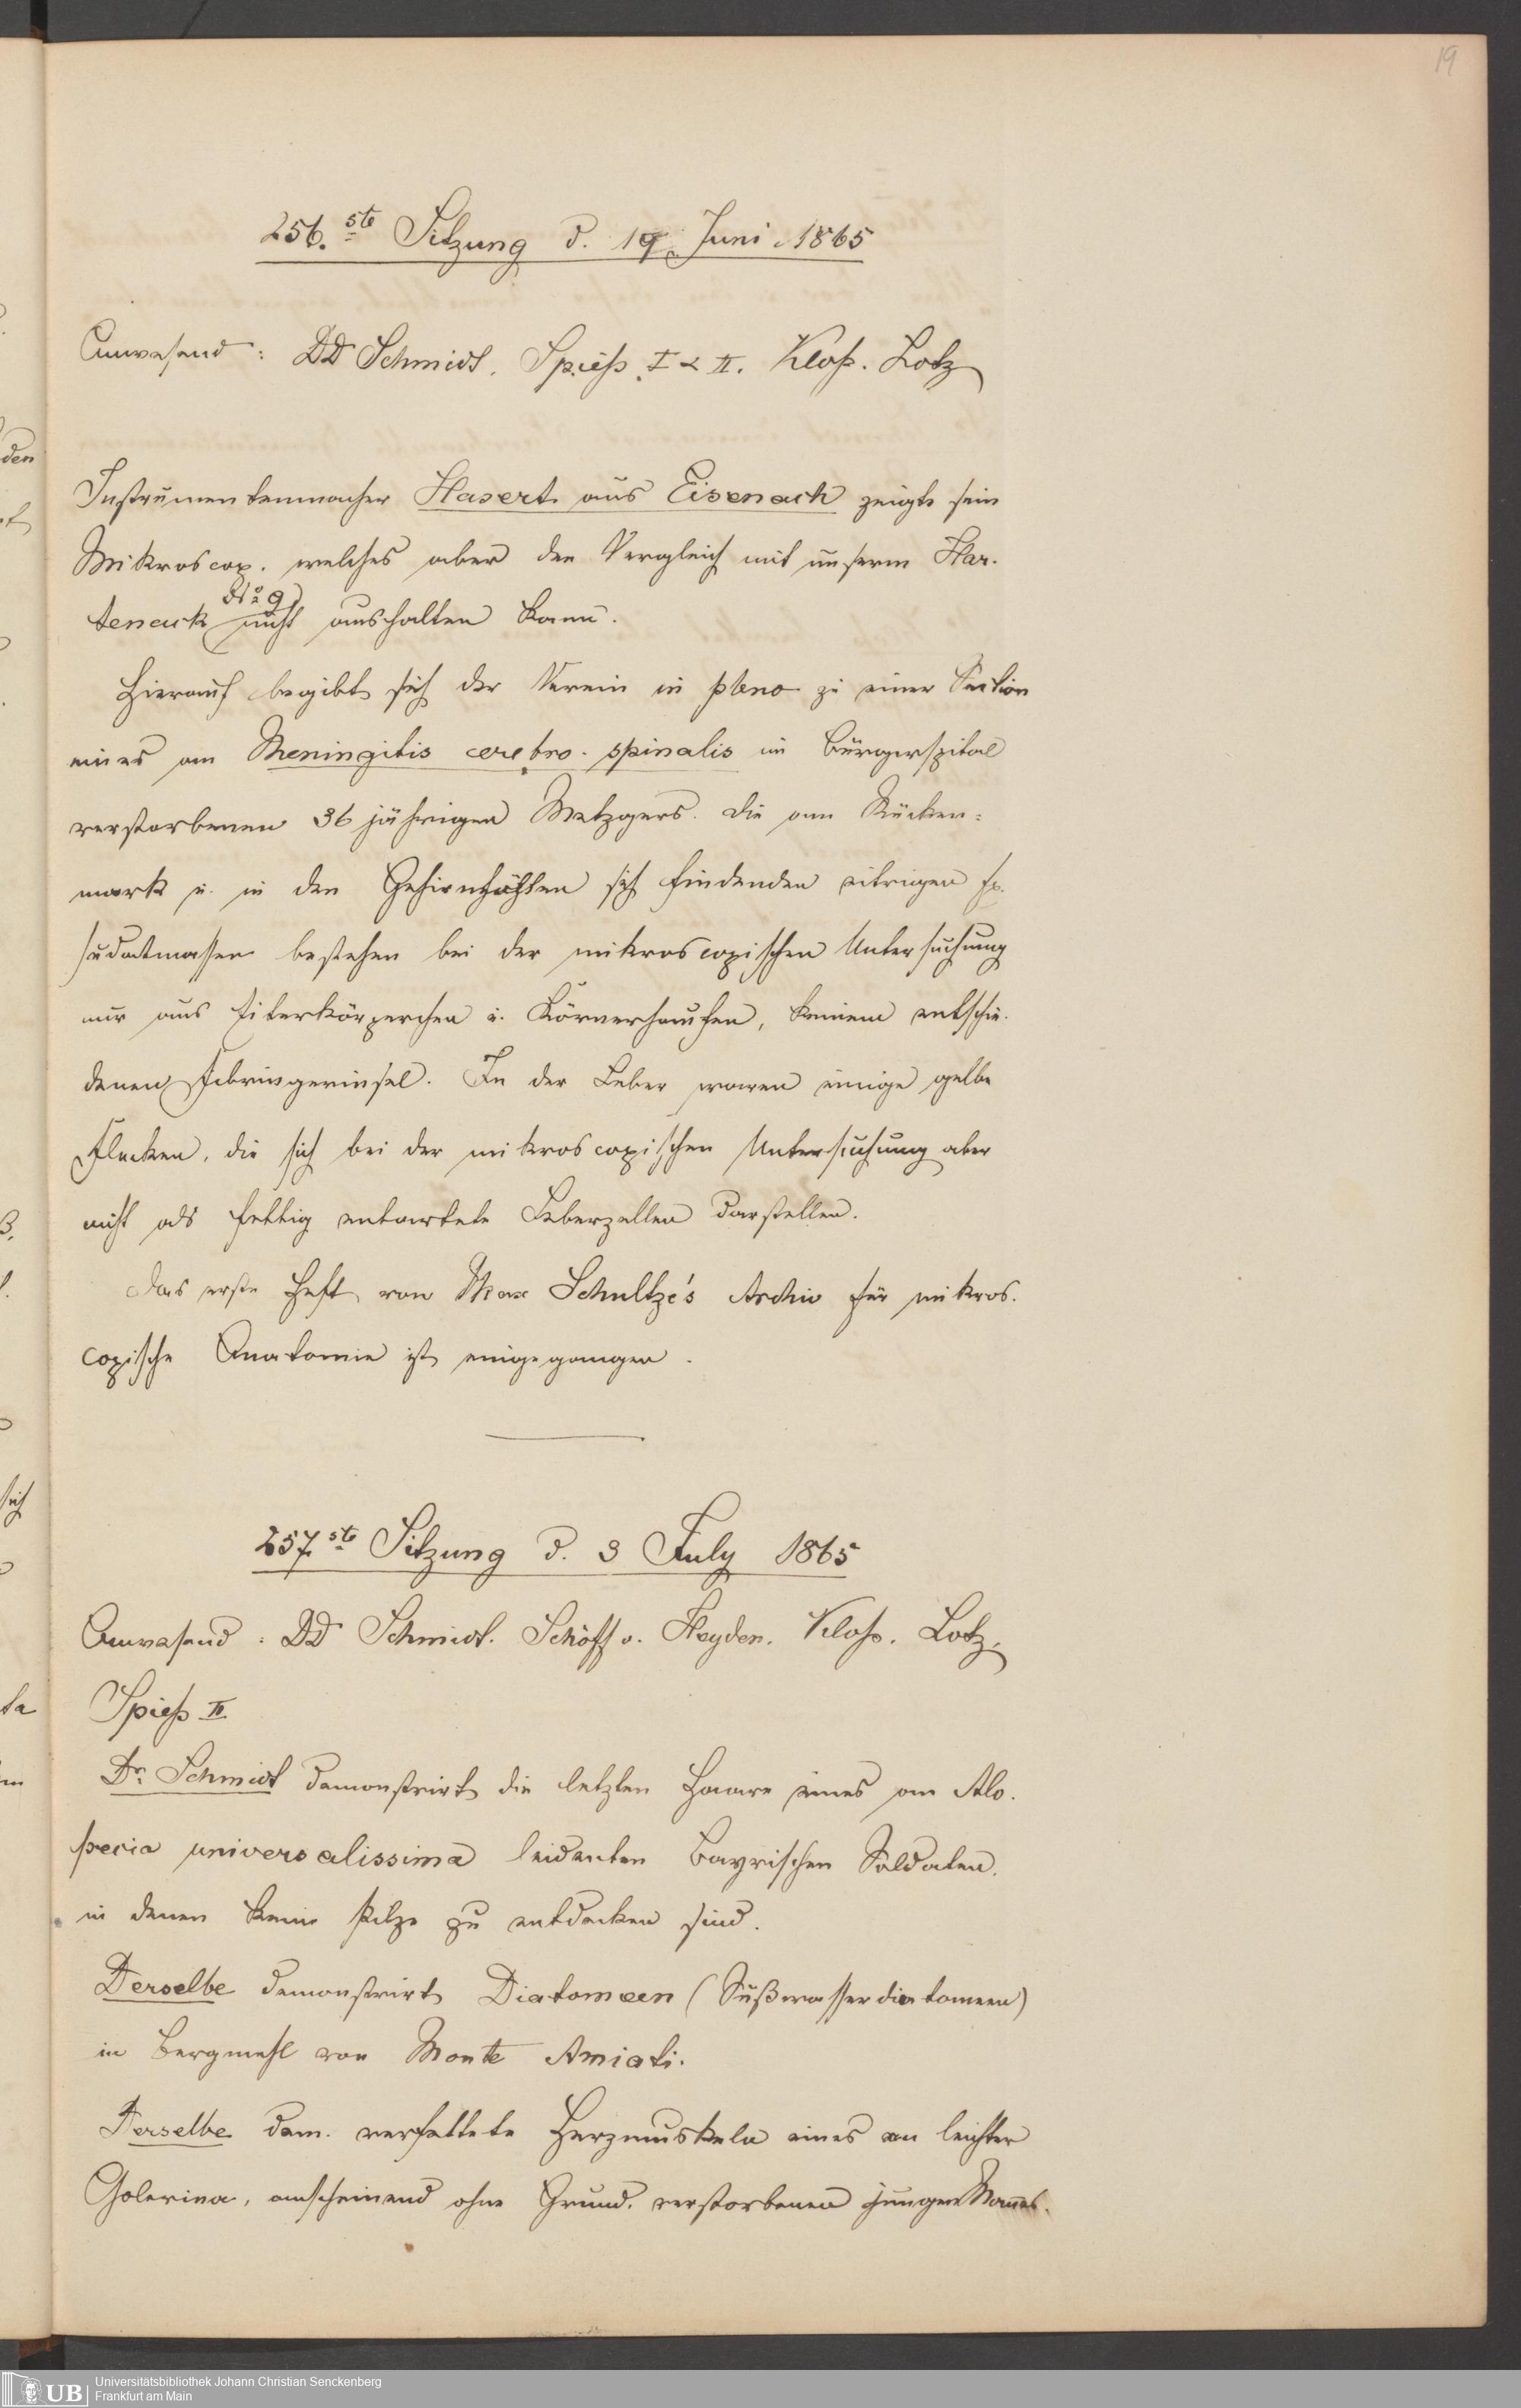 19
256.ste Sitzung d. 19 Juni 1865
Anwesend: DD Schmidt. Spieß I & II. Kloß. Lotz
Instrumentenmacher Hasert aus Eisenach zeigte sein
Mikroscop. welches aber den Vergleich mit unserm Har-
tenack No 9 nicht aushalten kann.
Hierauf begibt sich der Verein in pleno zu einer Section
eines an Meningitis cerebro-spinalis im Bürgerspital
verstorbenen 36 jährigen Metzgers. Die am Rücken-
mark u. in den Gehirnhöhlen sich findenden eitrigen Ex-
sudatmassen bestehen bei der mikroscopischen Untersuchung
nur aus Eiterkörperchen u. Körnerhaufen, keinem entschie-
denen Fibringerinsel. In der Leber waren einige gelbe
Flecken, die sich bei der mikroscopischen Untersuchung aber
nicht als fettig entartete Leberzellen darstellen.
Das erste Heft von Max Schultze's Archiv für mikros-
copische Anatomie ist eingegangen.
257.ste Sitzung d. 3 July 1865
Anwesend: DD Schmidt. Schöff v. Heyden. Kloß. Lotz.
Spieß II
Dr. Schmidt demonstrirt die letzten Haare eines an Alo-
pecia universalissima leidenten Bayrischen Soldaten.
in denen keine Pilze zu entdecken sind.
Derselbe demonstrirt Diatomeen (Süßwasserdiatomeen)
in Bergmehl von Monte Amiati.
Derselbe dem. verfettete Herzmuskeln eines an leichter
Colerina, anscheinend ohne Grund. verstorbenen jungen Mannes.
UB Universitätsbibliothek Johann Christian Senckenberg
Frankfurt am Main